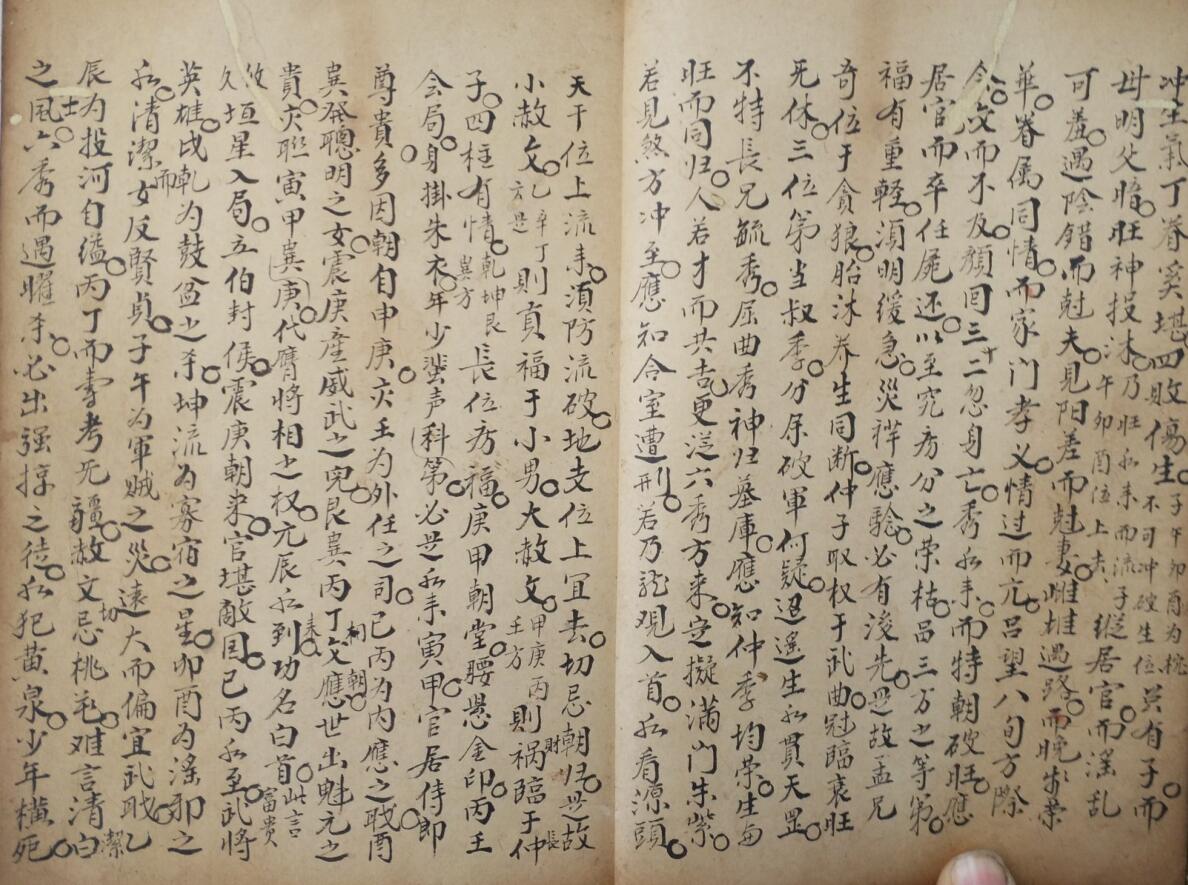 冲生氣丁眷奚堪四敗傷生子午卯酉為桃不可冲破生位只有子而
毋明父暗旺神投沐乃旺水来而流子午卯酉位上去縱居官而淫乱
可羞遇陰錯而尅夫見阳差而尅妻雌雄遇路而晚岁荣
華眷属同情而家门孝义情过而亢吕望八旬方際
会文而不及顏回三十二忽身亡秀水来而特朝破旺應
居官而卒任屍还以至究房分之荣枯品三方之等第
福有重輕須明缓急災祥應驗必有浚先是故孟兄
奇位于貪狼胎沐养生同断仲子取权于武曲冠臨衰旺
死休三位第当叔季分屎破軍何疑迢遥生水貫天罡
不特長兄毓秀屈曲秀神归墓庫應知仲季均荣生与
旺而同归人若才而共吉更送六秀方来定擬滿门朱紫
若見煞方冲至應知合室遭刑若乃龍观入首水看源頭
天干位上流来須防流破地支位上宜去切忌朝归是故
小赦文乙辛丁方是則貢福于小男大赦文甲庚丙壬方則祸臨于仲
子四柱有情乾坤艮巽方長位房福庚甲朝堂腰懸金印丙壬
会局身掛朱衣年少蜚声科第必是水来寅甲官居侍郎
尊貴多因朝自申庚灾王为外任之司已丙为内應之职酉
巽発聰明之女震庚產威武之兒艮巽丙丁文應世出魁元之
貴灾联寅甲巽庚代膺將相之权亢辰水到功名白首此言富貴
攸久垣星入局五伯封侯震庚朝来官堪敵囯已丙水至武将
英雄戌乾为鼓盆之杀坤流为寡宿之星卯酉为淫邪之
水清潔而女反賢貞子午为軍贼之災遠大而偏宜武职乙
辰为投河自缢丙丁而寿考无疆赦文切忌桃花难言清白潔
之風士六秀而遇曜杀必出强掠之徒水犯黄泉少年横死